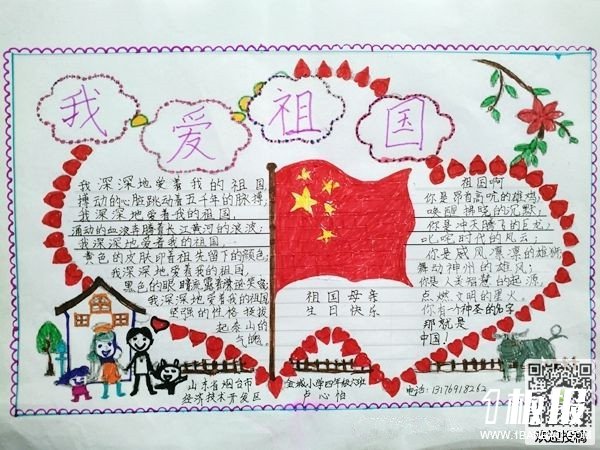 我爱祖国
我深深地爱着我的祖国，
搏动的心脏跳动着五千年的脉搏；
我深深地爱着我的祖国，
涌动的血液奔腾着长江黄河的浪波；
我深深地爱着我的祖国，
黄色的皮肤印着祖先留下的颜色；
我深深地爱着我的祖国，
黑色的眼睛流露着
我深深地爱着我的祖国
坚强的性格挺拔
起泰山的
气魄。
祖国母亲
生日快乐
祖国啊
你是昂首高吭的雄鸡；
唤醒拂晓的沉默；
你是冲天腾飞的巨龙；
叱咤时代的风云；
你是威风凛凛的雄狮；
舞动神州的雄风；
你是人类智慧的起源，
点燃文明的星火。
你有一个神圣的名字
那就是
中国！
山东省烟台市
经济技术开发区
金城小学四年级六班
卢心怡
电话：13176918262
1板报
欢迎投稿